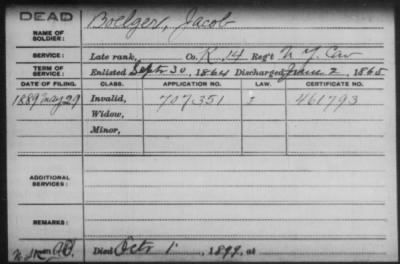 DEAD
NAME OF SOLDIER: Boelger, Jacob
SERVICE: Late rank, Co. K. 14 Reg't N Y. Cav
TERM OF SERVICE: Enlisted Sept. 30, 1864 Discharged June 2, 1865
DATE OF FILING. CLASS. APPLICATION NO. LAW. CERTIFICATE NO.
1889 May 29 Invalid, 707351 461793
Widow,
Minor,
ADDITIONAL SERVICES:
REMARKS:
Died Oct. 1, 1899, at